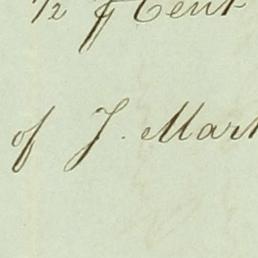 1/2 ⅌ Cent
of J. Mark